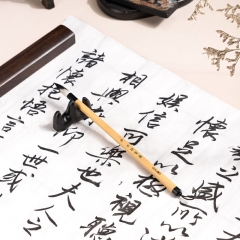 之盛所以
懷足以極視聽
娛信可樂也夫人之
相與俯仰一世或
諸懷抱悟言一